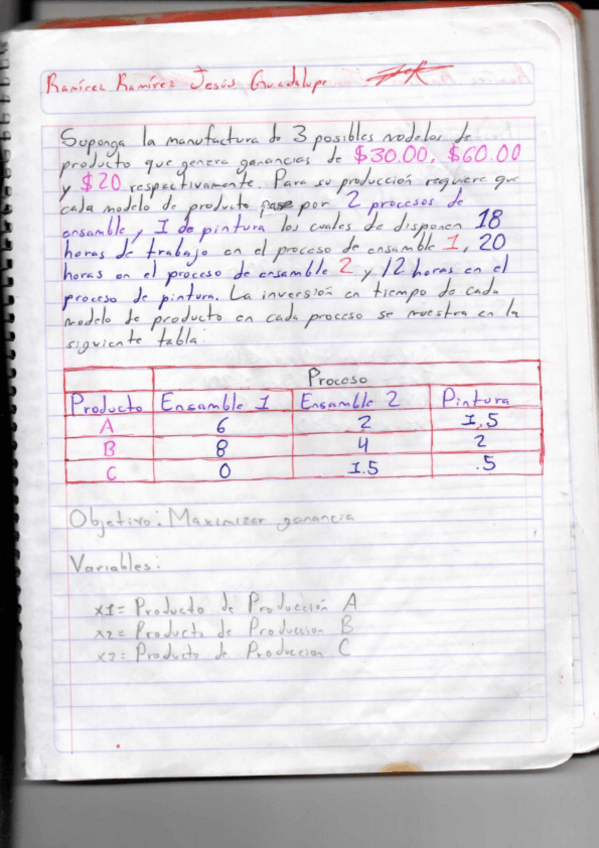 Ramírez Ramírez Jesús Guadalupe
Suponga la manufactura de 3 posibles modelos de
producto que genera ganancias de $30.00, $60.00
y $20 respectivamente. Para su producción requiere que
cada modelo de producto pase por 2 procesos de
ensamble, y 1 de pintura los cuales de disponen 18
horas de trabajo en el proceso de ensamble 1, 20
horas en el proceso de ensamble 2 y 12 horas en el
proceso de pintura. La inversión en tiempo de cada
modelo de producto en cada proceso se muestra en la
siguiente tabla:
Proceso
Producto Ensamble 1 Ensamble 2 Pintura
A 6 2 1.5
B 8 4 2
C 0 1.5 .5
Objetivo: Maximizar ganancia
Variables:
x1= Producto de Producción A
x2= Producto de Produccion B
x2= Producto de Produccion C